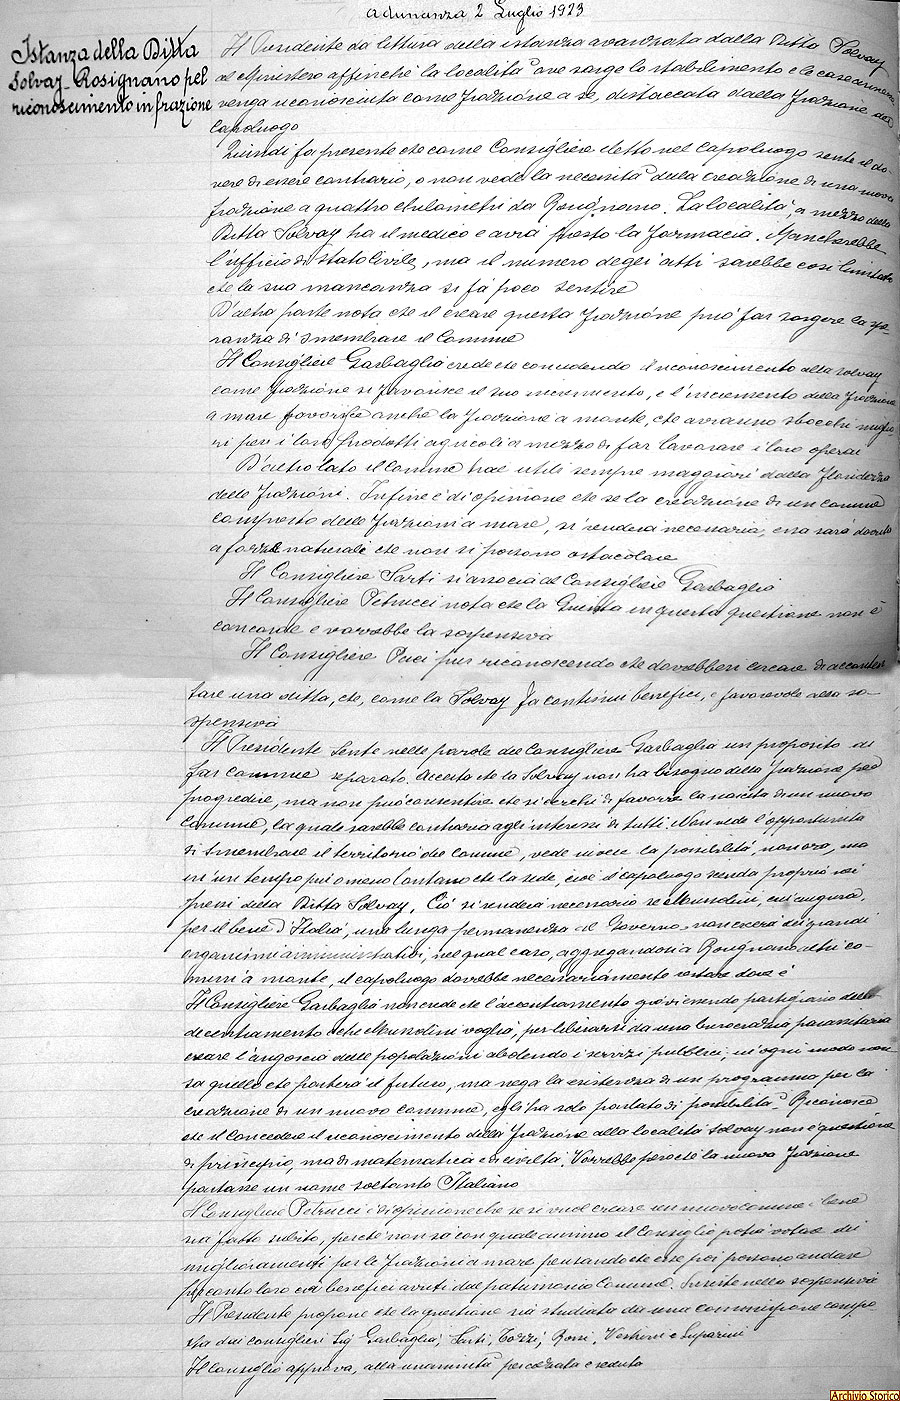 adunanza 2 Luglio 1923
Istanza della Ditta
Solvay Rosignano pel
riconoscimento in frazione
Il Presidente da lettura della istanza avanzata dalla Ditta Solvay
al Ministero affinchè la località ove sorge lo stabilimento e le case annesse
venga riconosciuta come frazione a se, distaccata dalla frazione del
Capoluogo
Quindi fa presente che come Consigliere eletto nel Capoluogo sente il do-
vere di essere contrario, o non vede la necessità della creazione di una nuova
frazione a quattro chilometri da Rosignano. La località, a mezzo della
Ditta Solvay ha il medico e avrà presto la farmacia. Mancherebbe
l'ufficio di stato Civile, ma il numero degli atti sarebbe così limitato
che la sua mancanza si fà poco sentire
D'altra parte nota che il creare questa frazione può far sorgere la spe-
ranza di smembrare il Comune
Il Consigliere Garbaglia crede che concedendo il riconoscimento alla Solvay
come frazione si favorisce il suo incremento, e l'incremento della frazione
a mare favorisce anche la frazione a monte, che avranno sbocchi miglio-
ri per i loro prodotti agricoli a mezzo di far lavorare i loro operai
D'altro lato il Comune trae utili sempre maggiori dalla floridezza
delle frazioni. Infine è di opinione che se la creazione di un comune
composto delle frazioni a mare, si renderà necessaria, essa sarà dovuta
a forze naturali che non si possono ostacolare
Il Consigliere Sarti si associa al Consigliere Garbaglia
Il Consigliere Petrucci nota che la Giunta in questa questione non è
concorde e vorrebbe la sospensiva
Il Consigliere Paci pur riconoscendo che dovrebbesi cercare di acconten
tare una ditta, che, come la Solvay fa continui benefici, è favorevole alla so-
spensiva
Il Presidente sente nelle parole del Consigliere Garbaglia un proposito di
far comune separato. Accetta che la Solvay non ha bisogno della frazione per
progredire, ma non può consentire che si cerchi di favorire la nascita di un nuovo
Comune, la quale sarebbe contraria agli interessi di tutti. Non vede l'opportunità
di smembrare il territorio del Comune, vede invece la possibilità, non ora, ma
in un tempo più o meno lontano che la sede, cioè il capoluogo scenda proprio nei
pressi della Ditta Solvay. Ciò si renderà necessario se Mussolini, cui augura,
per il bene d'Italia, una lunga permanenza al Governo, non creerà dei grandi
organismi amministrativi, nel qual caso, aggregandosi a Rosignano altri co-
muni a monte, il capoluogo dovrebbe necessariamente restare dove è
Il Consigliere Garbaglia non crede che l'accentramento essendo partigiano del
decentramento che Mussolini voglia, per liberarsi da una burocrazia parassitaria
creare l'angoscia delle popolazioni abolendo i servizi pubblici, in ogni modo non
sa quello che porterà il futuro, ma nega la esistenza di un programma per la
creazione di un nuovo comune, egli ha solo parlato di possibilità. Riconosce
che il concedere il riconoscimento della frazione alla località Solvay non è questione
di principio, ma di matematica e di civiltà. Vorrebbe però che la nuova frazione
portasse un nome soltanto Italiano
Il Consigliere Petrucci è di opinione che se si vuol creare un nuovo comune è bene
sia fatto subito, perchè non sa con quale animo il Consiglio potrà votare dei
miglioramenti per le frazioni a mare pensando che esse poi possono andare
per conto loro coi benefici avuti dal patrimonio Comune. Insiste nella sospensiva
Il Presidente propone che la questione sia studiata da una commissione compo-
sta dai consiglieri Sig. Garbaglia, Sarti, Tozzi, Rossi, Vestrini e Suparini
Il Consiglio approva, alla unanimità per alzata e seduta
Archivio Storico